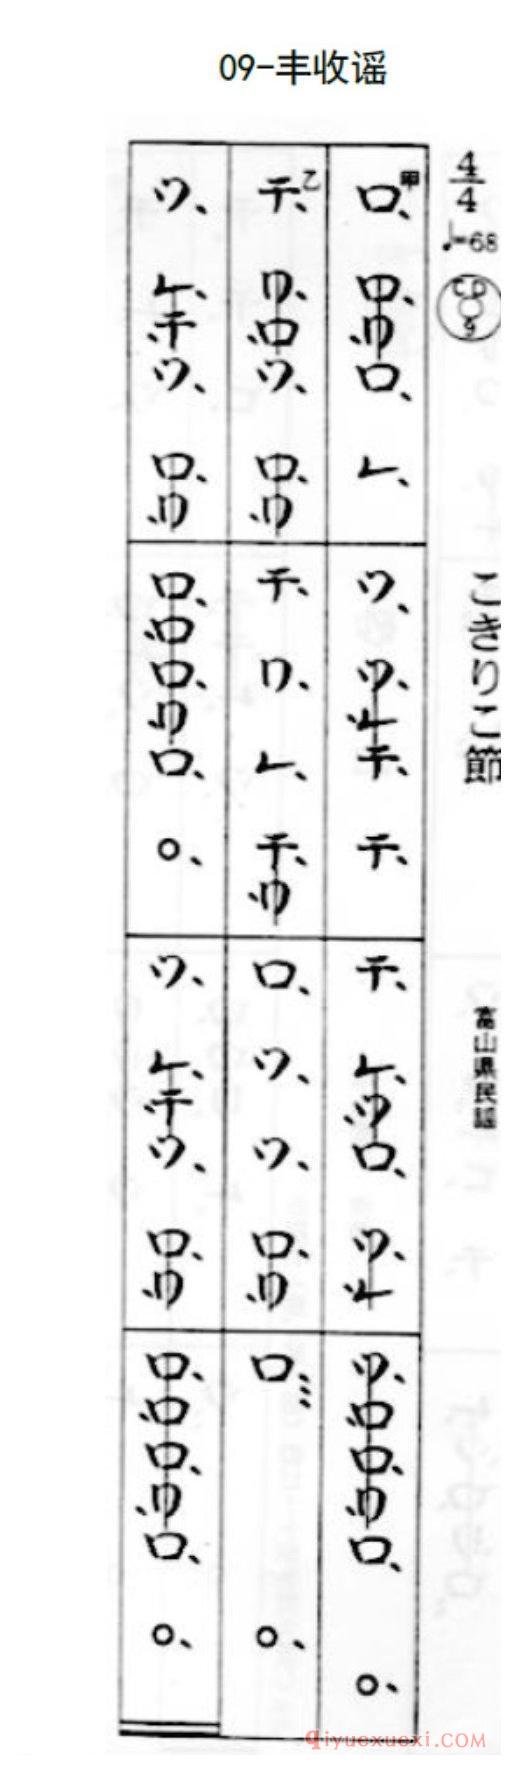 09-丰收谣
4/4
♩=68
CD
9
こきりこ節
富山県民謡
甲
ロ、ロ、、リロ、レ、
ツ、ツ、、レチ、チ、
チ、レ、、ツロ、ツ、、レ
ツ、、ロロ、、リロ、○、
乙
チ、リ、、ロツ、ロ、、リ
チ、リ、レ、チ、、リ
ロ、ツ、ツ、ロ、、リ
ロ、、、、○、
ツ、レ、、チツ、ロ、、リ
ロ、、ロロ、、リロ、○、
ツ、レ、、チツ、ロ、、リ
ロ、、ロロ、、リロ、○、
qiyuexuexi.COM